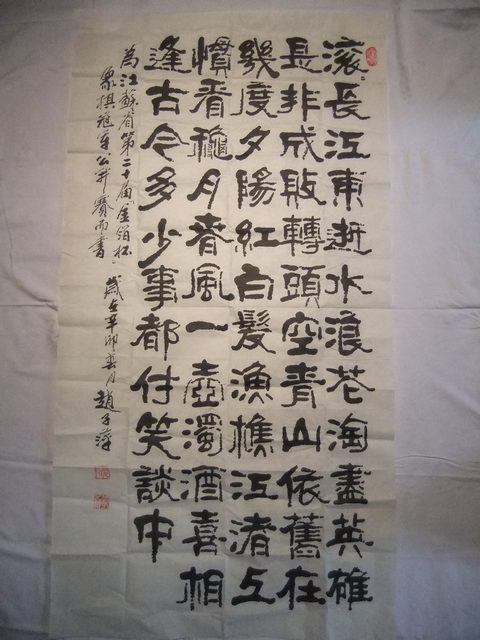 滚〻長江東逝水浪花淘盡英雄
是非成敗轉頭空青山依舊在
幾度夕陽紅白髮漁樵江渚上
慣看穐月春風一壺濁酒喜相
逢古今多少事都付笑談中
為江蘇省第二十届金箔杯
象棋冠军公开賽而書 歲在辛卯春月趙子萍